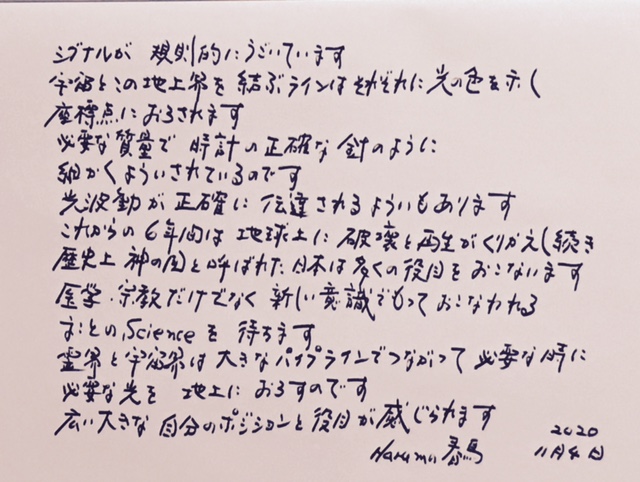 シグナルが 規則的にうごいています
宇宙とこの地上界を 結ぶラインはそれぞれに 光の色を示し
座標点に おろされます
必要な質量で 時計の正確な 針のように
細かくよういされているのです
光波動が 正確に 伝達されるよういもあります
これからの 6年間は 地球上に 破壊と再生がくりかえし続き
歴史上 神の国と呼ばれた 日本は多くの役目を おこないます
医学・宗教だけでなく 新しい意識でもって おこなわれる
まことのScienceを 待ちます
霊界と宇宙界は 大きなパイプラインでつながって 必要な時に
必要な光を 地上に おろすのです
広い大きな 自分のポジションと役目が 感じられます
Haruma 春馬
2020
11月4日